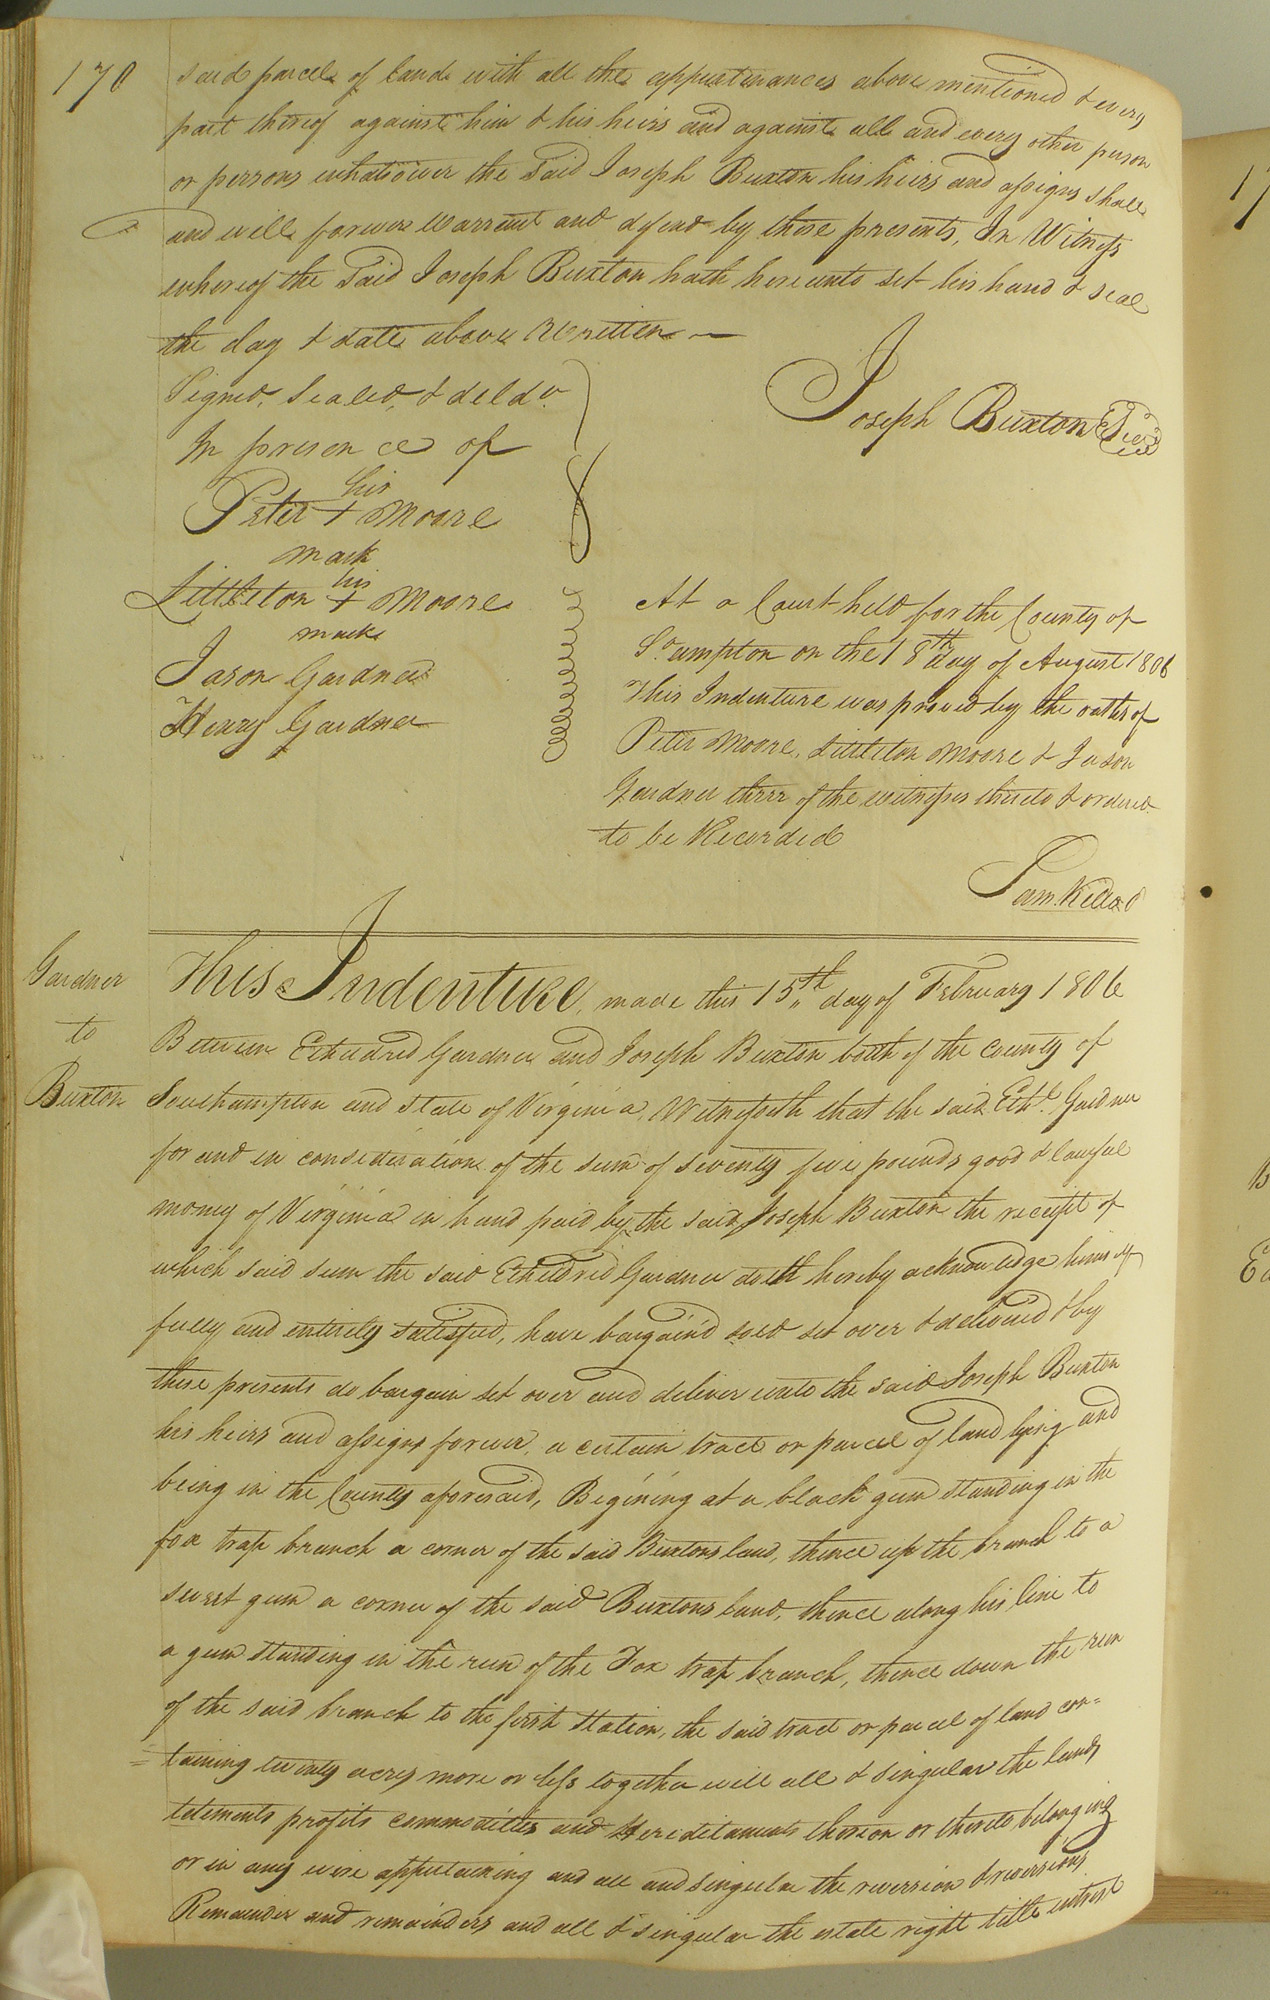 170
said parcel of land with all the appertinances above mentioned & every
part thereof against him & his heirs and against all and every other person
or persons whatsoever the said Joseph Buxton his heirs and assigns shall
and will forever warrant and defend by these presents, In Witness
whereof the said Joseph Buxton hath hereunto set his hand & seal
the day & date above Written
Signed, Sealed, & deld.
In presence of
Joseph Buxton Seal
his
Peter + Moore
mark
his
Littleton + Moore
mark
Jason Gardner
Henry Gardner
At a Court held for the County of
So.ampton on the 18th day of August 1806
This Indenture was proved by the oaths of
Peter Moore, Littleton Moore & Jason
Gardner three of the witnesses thereto & ordered
to be Recorded
Sam. Kello
Gardner
to
Buxton
This Indenture, made this 15th day of February 1806
Between Etheldred Gardner and Joseph Buxton both of the County of
Southampton and state of Virginia, Witnesseth that the said Ethd. Gardner
for and in consideration of the sum of seventy five pounds good & lawful
money of Virginia in hand paid by the said Joseph Buxton the receipt of
which said sum the said Etheldred Gardner doth hereby acknowledge himself
fully and entirely satisfied, have bargain'd sold set over & delivered & by
these presents do bargain set over and deliver unto the said Joseph Buxton
his heirs and assigns forever, a certain tract or parcel of land lying and
being in the County aforesaid, Begining at a black gum standing in the
fox trap branch a corner of the said Buxtons land, thence up the branch to a
sweet gum a corner of the said Buxtons land, thence along his line to
a gum standing in the run of the Fox trap branch, thence down the run
of the said branch to the first station, the said tract or parcel of land con=
=taining twenty acres more or less together will all & singular the lands
tetements profits commodities and Hereditaments thereon or thereto belonging
or in any wise appertaining and all and singular the reversion & reversions
Remainder and remainders and all & singular the estate right title intrest